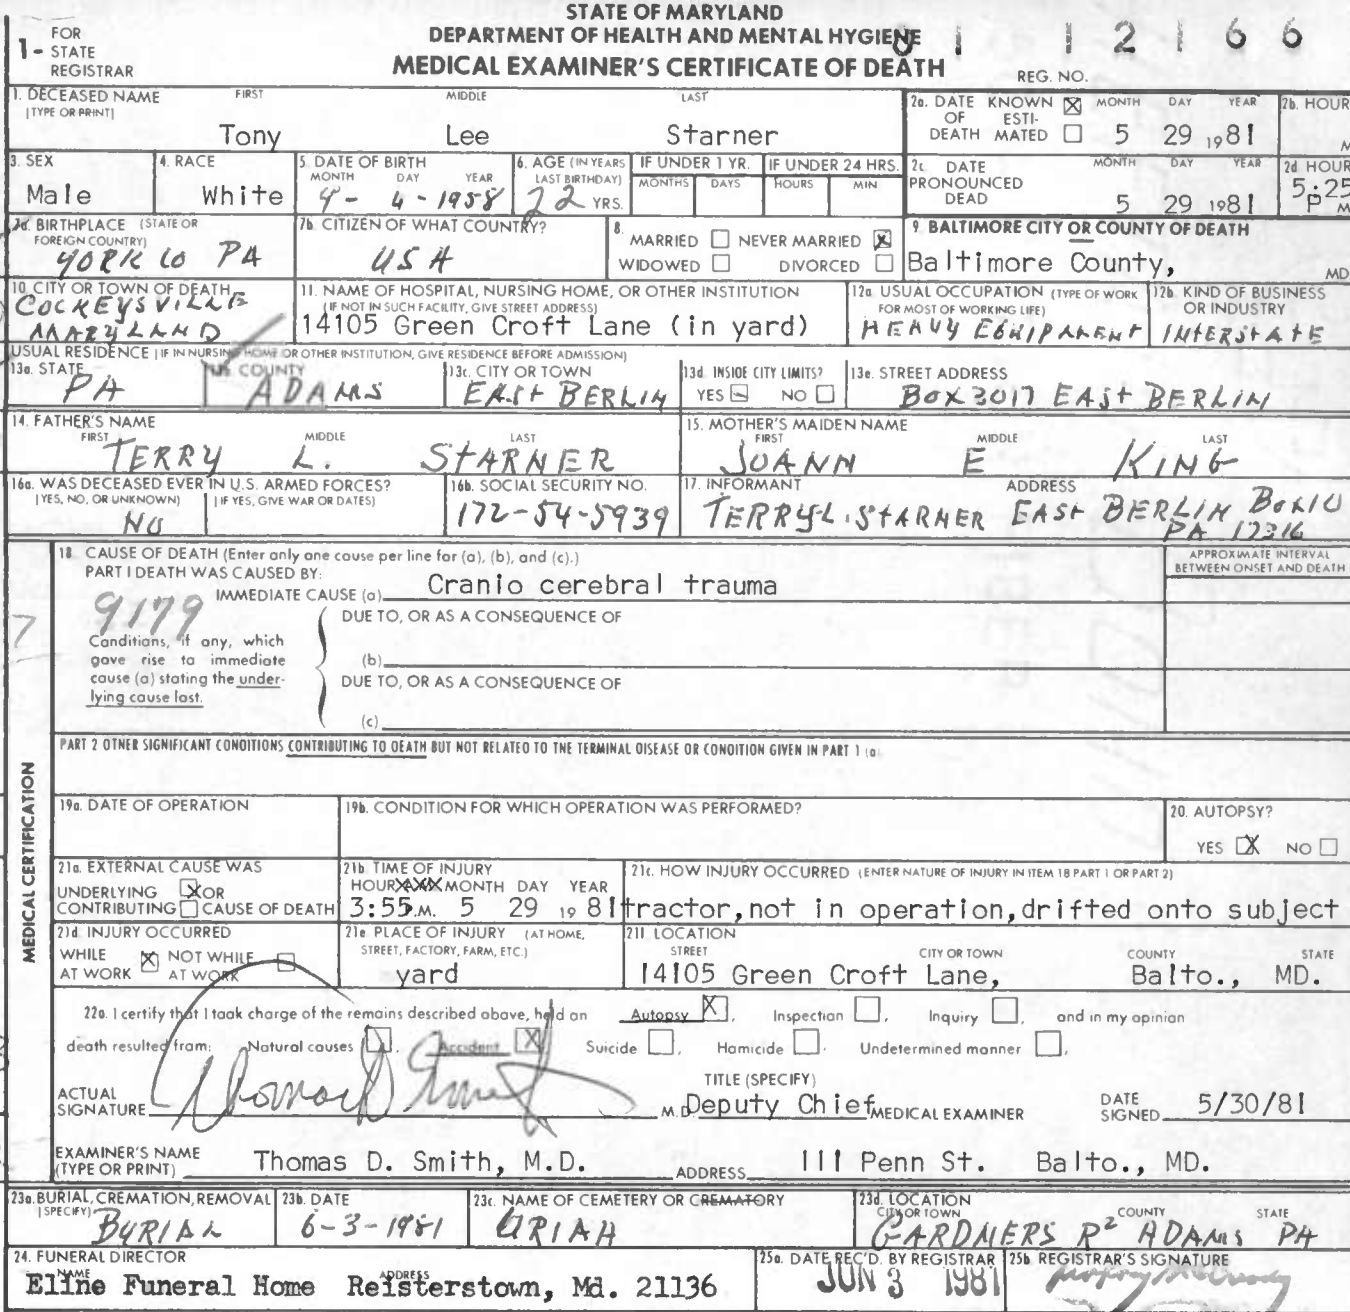 STATE OF MARYLAND
DEPARTMENT OF HEALTH AND MENTAL HYGIENE
MEDICAL EXAMINER'S CERTIFICATE OF DEATH
1- FOR STATE REGISTRAR
81 12166
REG. NO.
1. DECEASED NAME (TYPE OR PRINT) FIRST MIDDLE LAST
Tony Lee Starner
2a. DATE OF DEATH KNOWN ☒ ESTIMATED ☐ MONTH DAY YEAR
5 29 1981
2b. HOUR M
3. SEX
Male
4. RACE
White
5. DATE OF BIRTH MONTH DAY YEAR
4- 4-1958
6. AGE (IN YEARS LAST BIRTHDAY)
22 YRS.
IF UNDER 1 YR. MONTHS DAYS
IF UNDER 24 HRS. HOURS MIN
2c. DATE PRONOUNCED DEAD MONTH DAY YEAR
5 29 1981
2d HOUR
5:25 P M
7a. BIRTHPLACE (STATE OR FOREIGN COUNTRY)
YORK CO PA
7b. CITIZEN OF WHAT COUNTRY?
USA
8. MARRIED ☐ NEVER MARRIED ☒
WIDOWED ☐ DIVORCED ☐
9. BALTIMORE CITY OR COUNTY OF DEATH
Baltimore County, MD
10. CITY OR TOWN OF DEATH
COCKEYSVILLE
MARYLAND
11. NAME OF HOSPITAL, NURSING HOME, OR OTHER INSTITUTION
(IF NOT IN SUCH FACILITY, GIVE STREET ADDRESS)
14105 Green Croft Lane (in yard)
12a. USUAL OCCUPATION (TYPE OF WORK FOR MOST OF WORKING LIFE)
HEAVY EQUIPMENT
12b. KIND OF BUSINESS OR INDUSTRY
INTERSTATE
USUAL RESIDENCE (IF IN NURSING HOME OR OTHER INSTITUTION, GIVE RESIDENCE BEFORE ADMISSION)
13a. STATE
PA
13b. COUNTY
ADAMS
13c. CITY OR TOWN
EAST BERLIN
13d. INSIDE CITY LIMITS?
YES ☐ NO ☐
13e. STREET ADDRESS
BOX 3017 EAST BERLIN
14. FATHER'S NAME FIRST MIDDLE LAST
TERRY L. STARNER
15. MOTHER'S MAIDEN NAME FIRST MIDDLE LAST
JOANN E KING
16a. WAS DECEASED EVER IN U.S. ARMED FORCES?
(YES, NO, OR UNKNOWN) (IF YES, GIVE WAR OR DATES)
NO
16b. SOCIAL SECURITY NO.
172-54-5939
17. INFORMANT ADDRESS
TERRY L. STARNER EAST BERLIN
PA 17316
18. CAUSE OF DEATH (Enter only one cause per line for (a), (b), and (c).)
PART I DEATH WAS CAUSED BY:
IMMEDIATE CAUSE (a) Cranio cerebral trauma
9179
DUE TO, OR AS A CONSEQUENCE OF
Conditions, if any, which gave rise to immediate cause (a) stating the underlying cause last.
(b)
DUE TO, OR AS A CONSEQUENCE OF
(c)
APPROXIMATE INTERVAL BETWEEN ONSET AND DEATH
7
PART 2 OTHER SIGNIFICANT CONDITIONS CONTRIBUTING TO DEATH BUT NOT RELATED TO THE TERMINAL DISEASE OR CONDITION GIVEN IN PART 1 (a)
MEDICAL CERTIFICATION
19a. DATE OF OPERATION
19b. CONDITION FOR WHICH OPERATION WAS PERFORMED?
20. AUTOPSY?
YES ☒ NO ☐
21a. EXTERNAL CAUSE WAS
UNDERLYING ☒ OR
CONTRIBUTING ☐ CAUSE OF DEATH
21b. TIME OF INJURY
HOUR MONTH DAY YEAR
3:55 M. 5 29 1981
21c. HOW INJURY OCCURRED (ENTER NATURE OF INJURY IN ITEM 18 PART 1 OR PART 2)
tractor, not in operation, drifted onto subject
21d. INJURY OCCURRED
WHILE AT WORK ☒ NOT WHILE AT WORK ☐
21e. PLACE OF INJURY (AT HOME, STREET, FACTORY, FARM, ETC.)
yard
21f. LOCATION
STREET CITY OR TOWN COUNTY STATE
14105 Green Croft Lane, Balto., MD.
22a. I certify that I took charge of the remains described above, held an Autopsy ☒, Inspection ☐, Inquiry ☐, and in my opinion
death resulted from: Natural causes ☐, Accident ☒ Suicide ☐, Homicide ☐. Undetermined manner ☐,
ACTUAL SIGNATURE Thomas D Smith M.D.
TITLE (SPECIFY)
Deputy Chief MEDICAL EXAMINER
DATE SIGNED 5/30/81
EXAMINER'S NAME (TYPE OR PRINT) Thomas D. Smith, M.D. ADDRESS 111 Penn St. Balto., MD.
23a. BURIAL, CREMATION, REMOVAL (SPECIFY)
BURIAL
23b. DATE
6-3-1981
23c. NAME OF CEMETERY OR CREMATORY
URIAH
23d. LOCATION CITY OR TOWN COUNTY STATE
GARDNERS R2 ADAMS PA
24. FUNERAL DIRECTOR
NAME ADDRESS
Eline Funeral Home Reisterstown, Md. 21136
25a. DATE REC'D. BY REGISTRAR
JUN 3 1981
25b. REGISTRAR'S SIGNATURE